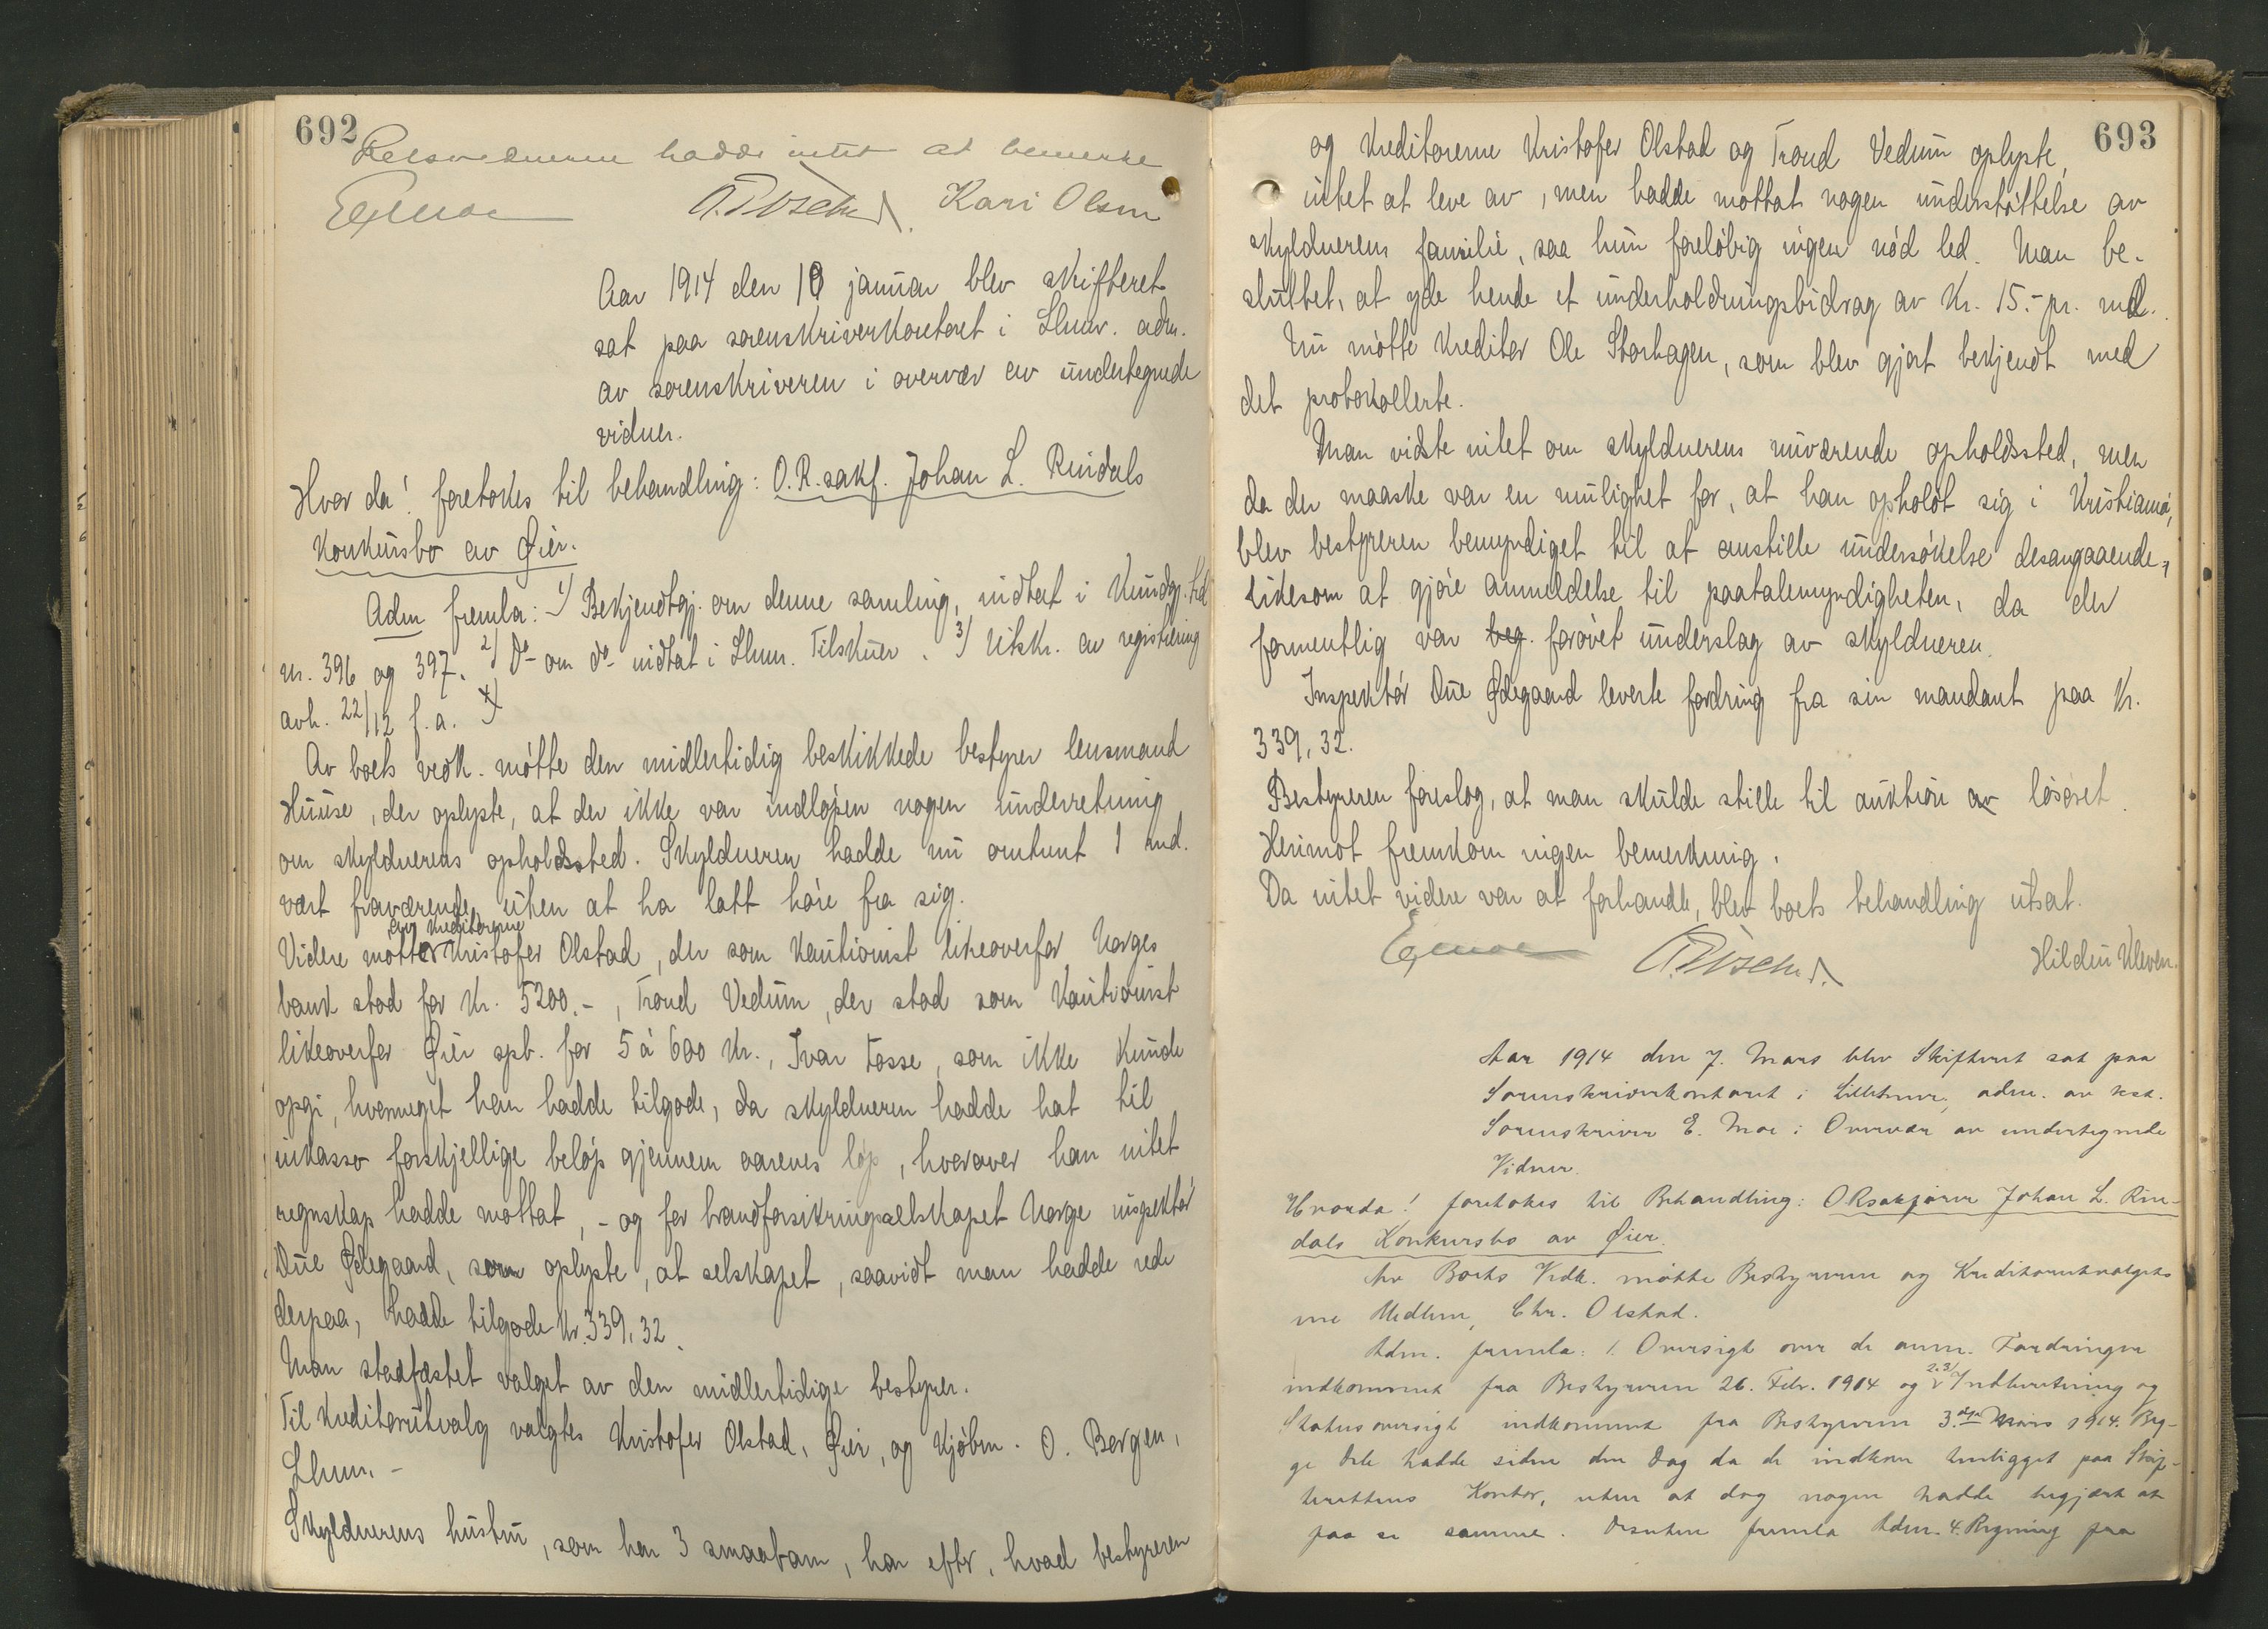 692
Retsvidnerne hadde intet at bemerke
EgMoe Kari Olsen
Aar 1914 den 10 januar blev skifteret
sat paa sorenskriverkontoret i Lhmr. adm.
av sorenskriveren i overvær av undertegnede
vidner.
Hvor da! foretokes til behandling: O.R.sakf. Johan L. Rindals
konkursbo av Øier.
Adm fremla: 1) Bekjendtgj. om denne samling, indtat i Kundgj.tid
nr. 396 og 397. 2) Do om do indtat i Lhmr. Tilskuer. 3) Utskr. av registrering
avh. 22/12 f.a. 4)
Av boets vedk. møtte den midlertidig beskikkede bestyrer lensmand
Huuse, der oplyste, at der ikke var indløpen nogen underretning
om skyldnerens opholdssted. Skyldneren hadde nu omtrent 1 md.
vært fraværende uten at ha latt høre fra sig.
av kreditorene
Videre møtte Kristofer Olstad, der som kautionist likeoverfor Norges
bank stod for Kr. 5200.-, Trond Vedum, der stod som kautionist
likeoverfor Øier spb. for 5 à 600 Kr., Ivar Fosse, som ikke kunde
opgi, hvormeget han hadde tilgode, da skyldneren hadde hat til
inkasso forskjellige beløp gjennem aarenes løp, hvorover han intet
regnskap hadde mottat, - og for brandforsikringsselskapet Norge inspektør
Due Ødegaard, som oplyste, at selskapet, saavidt man hadde rede
derpaa, hadde tilgode Kr. 339,32.
Man stadfæstet valget av den midlertidige bestyrer.
Til kreditorutvalg valgtes Kristofer Olstad, Øier, og kjøbm. O. Bergen,
Lhmr. -
Skyldnerens hustru, som har 3 smaabarn, har efter, hvad bestyreren
693
og kreditorerne Kristofer Olstad og Trond Vedum oplyste,
intet at leve av, men hadde mottat nogen understøttelse av
skyldnerens familie, saa hun foreløbig ingen nød led. Man be-
sluttet, at yde hende et underholdningsbidrag av Kr. 15.- pr. md.
Nu møtte kreditor Ole Storhagen, som blev gjort bekjendt med
det protokollerte.
Man vidste intet om skyldnerens nuværende opholdssted, men
da der maaske var en mulighet for, at han opholdt sig i Kristiania,
blev bestyreren bemyndiget til at anstille undersøkelse desangaaende,
likesom at gjøre anmeldelse til paatalemyndigheten, da der
formentlig var beg. forøvet underslag av skyldneren.
Inspektør Due Ødegaard leverte fordring fra sin mandant paa Kr.
339,32.
Bestyreren foreslog, at man skulde stille til auktion av løsøret.
Herimot fremkom ingen bemerkning.
Da intet videre var at forhandle, blev boets behandling utsat.
EgMoe Hildur Kleven.
Aar 1914 den 7. Mars blev Skifteret sat paa
Sorenskriverkontoret i Lillehmr, adm. av kst.
Sorenskriver E. Moe i Overvær av undertegnede
Vidner.
Hvorda! foretokes til Behandling: ORsakfører Johan L. Rin-
dals Konkursbo av Øier.
Av Boets Vedk. møtte Bestyreren og Kreditorutvalgets
ene Medlem, Chr. Olstad.
Adm. fremla: 1. Oversigt over de anm. Fordringer
indkommet fra Bestyreren 26. Febr. 1914 og 2.3/ Indberetning og
Statusoversigt indkommet fra Bestyreren 3.dje Mars 1914. Beg-
ge Dele hadde siden den Dag da de indkom henligget paa Skif-
terettens Kontor, uten at dog nogen hadde begjært at
faa se samme. Desuten fremla Adm. 4. Regning fra